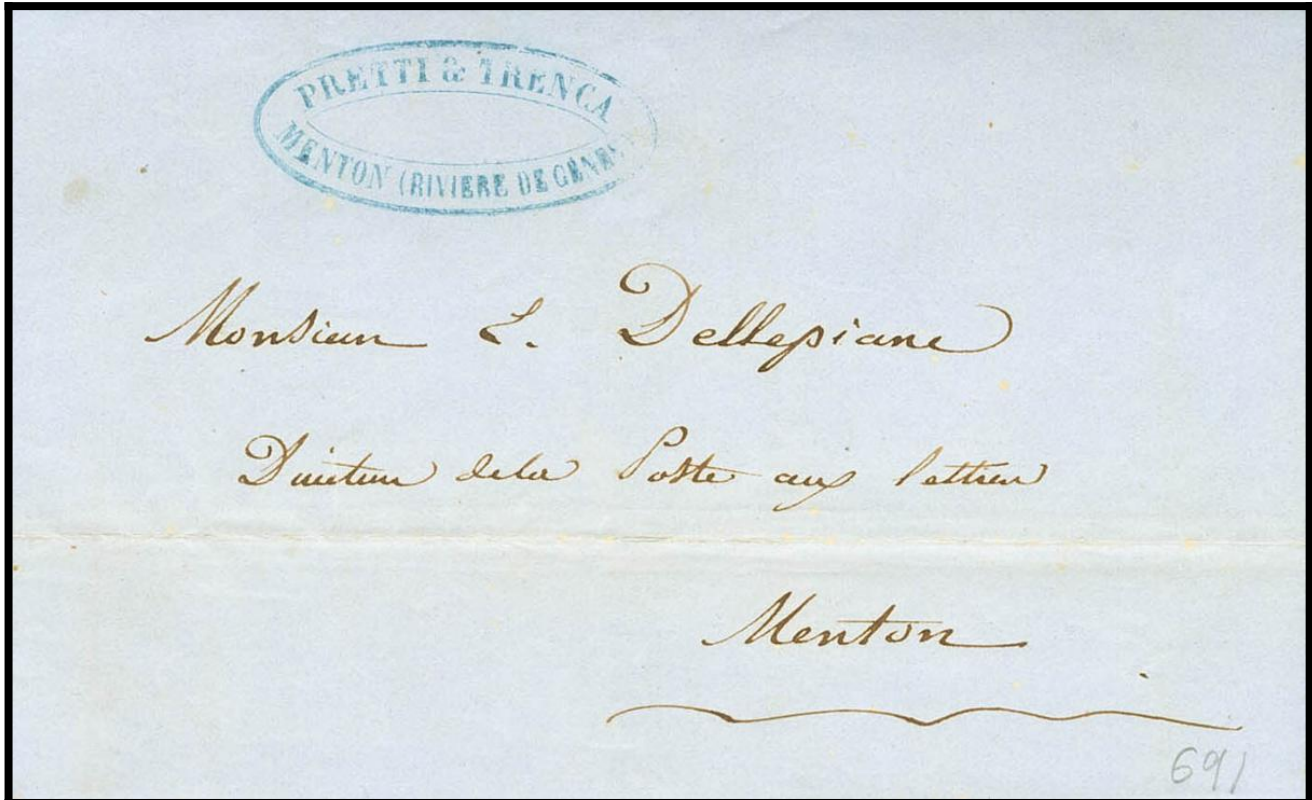 PRETTI & TRENCA
MENTON (RIVIERE DE GÊNES
Monsieur L. Dellepiane
Directeur de la Poste aux lettres
Menton
691